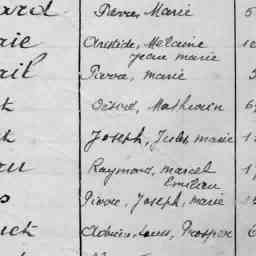 ard Pierre, Marie 5
rie Aristide, Melaine 10
jean marie
ail Pierre, marie 5
t Désiré, Mathurin 6
t Joseph, Jules, marie 1
au Raymond, marcel 1
Emilien
s Pierre, Joseph, marie
uet Adrien, Louis, Prosper 6